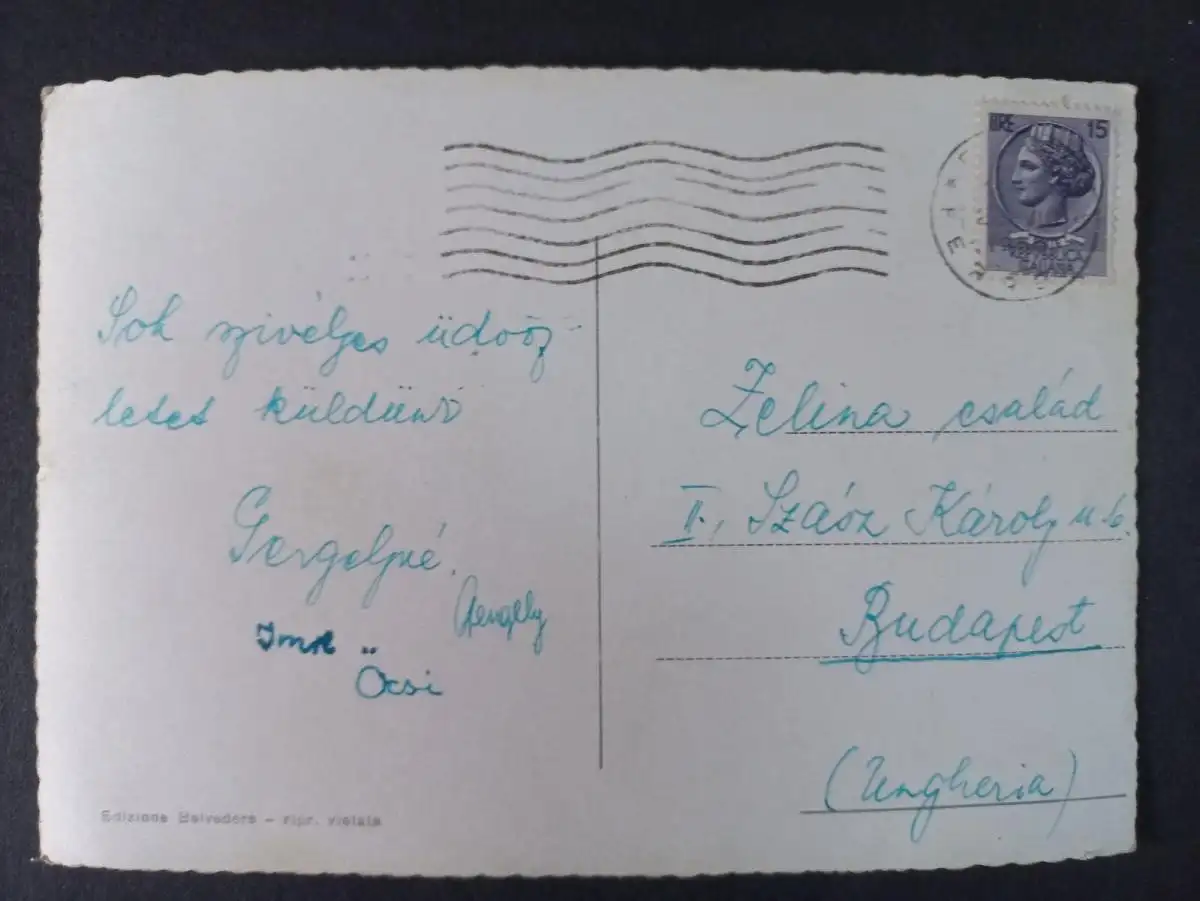 LIRE 15
REPUBBLICA
ITALIANA
Sok szivéljes üdvöz-
letet küldünk
Gergelyné.
Gergely
Imre
Öcsi
Zelina család
II., Szász Károly u 6.
Budapest
(Ungheria)
Edizione Belvedere - ripr. vietata